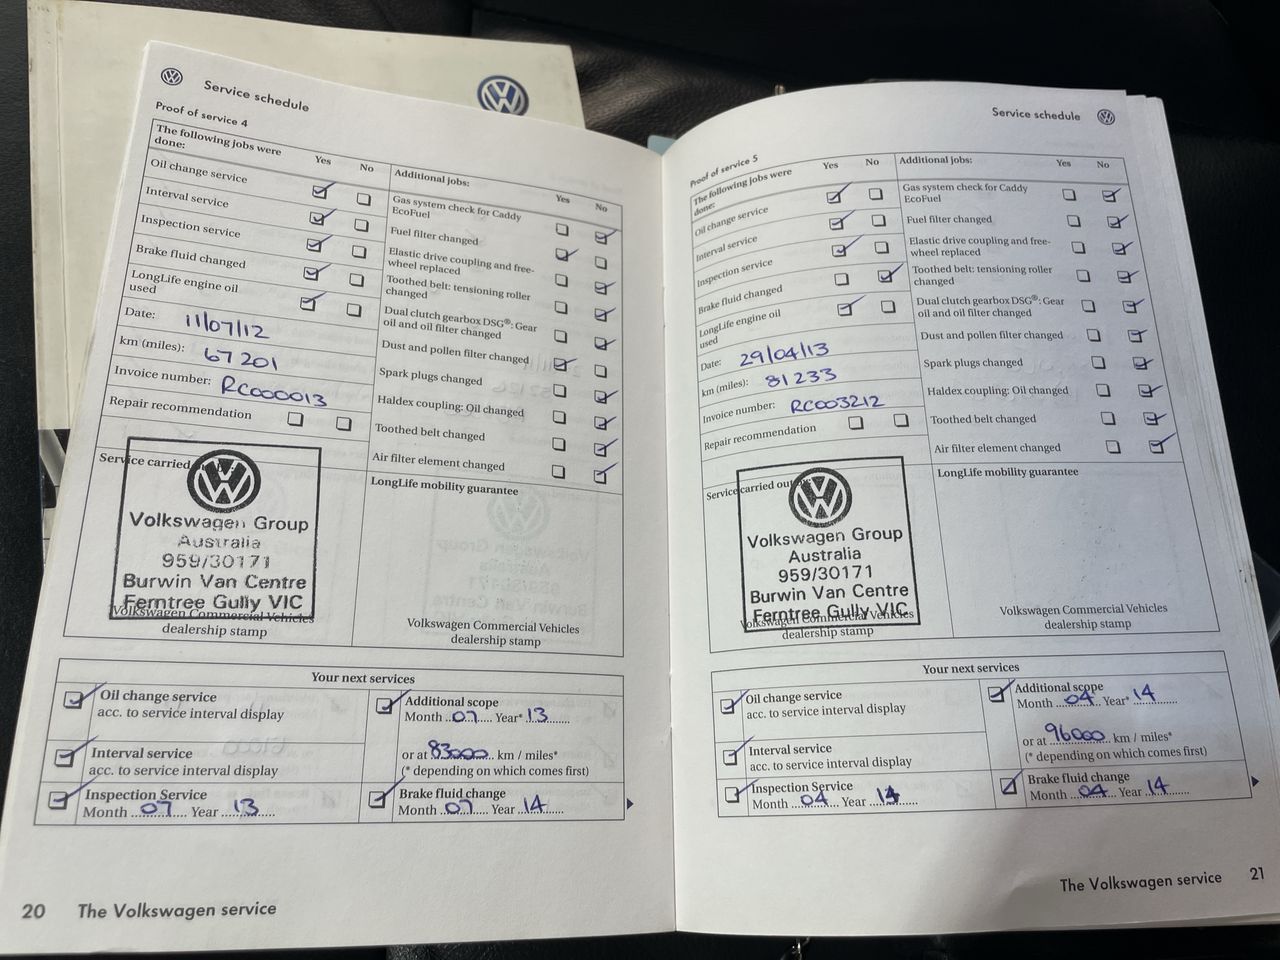 Service schedule
Proof of service 4
The following jobs were done: Yes No
Oil change service
Interval service
Inspection service
Brake fluid changed
LongLife engine oil used
Date: 11/07/12
km (miles): 67 201
Invoice number: RC000013
Repair recommendation
Additional jobs: Yes No
Gas system check for Caddy EcoFuel
Fuel filter changed
Elastic drive coupling and free-wheel replaced
Toothed belt: tensioning roller changed
Dual clutch gearbox DSG®: Gear oil and oil filter changed
Dust and pollen filter changed
Spark plugs changed
Haldex coupling: Oil changed
Toothed belt changed
Air filter element changed
Service carried
Volkswagen Group
Australia
959/30171
Burwin Van Centre
Ferntree Gully VIC
Volkswagen Commercial Vehicles
dealership stamp
LongLife mobility guarantee
Volkswagen Commercial Vehicles
dealership stamp
Your next services
Oil change service
acc. to service interval display
Interval service
acc. to service interval display
Inspection Service
Month 07 Year 13
Additional scope
Month 07 Year* 13
or at 83000 km / miles*
(* depending on which comes first)
Brake fluid change
Month 07 Year 14
20 The Volkswagen service
Service schedule
Proof of service 5
The following jobs were done: Yes No
Oil change service
Interval service
Inspection service
Brake fluid changed
LongLife engine oil used
Date: 29/04/13
km (miles): 81 233
Invoice number: RC003212
Repair recommendation
Additional jobs: Yes No
Gas system check for Caddy EcoFuel
Fuel filter changed
Elastic drive coupling and free-wheel replaced
Toothed belt: tensioning roller changed
Dual clutch gearbox DSG®: Gear oil and oil filter changed
Dust and pollen filter changed
Spark plugs changed
Haldex coupling: Oil changed
Toothed belt changed
Air filter element changed
Service carried out
Volkswagen Group
Australia
959/30171
Burwin Van Centre
Ferntree Gully VIC
Volkswagen Commercial Vehicles
dealership stamp
LongLife mobility guarantee
Volkswagen Commercial Vehicles
dealership stamp
Your next services
Oil change service
acc. to service interval display
Interval service
acc. to service interval display
Inspection Service
Month 04 Year 14
Additional scope
Month 04 Year* 14
or at 96000 km / miles*
(* depending on which comes first)
Brake fluid change
Month 04 Year 14
The Volkswagen service 21